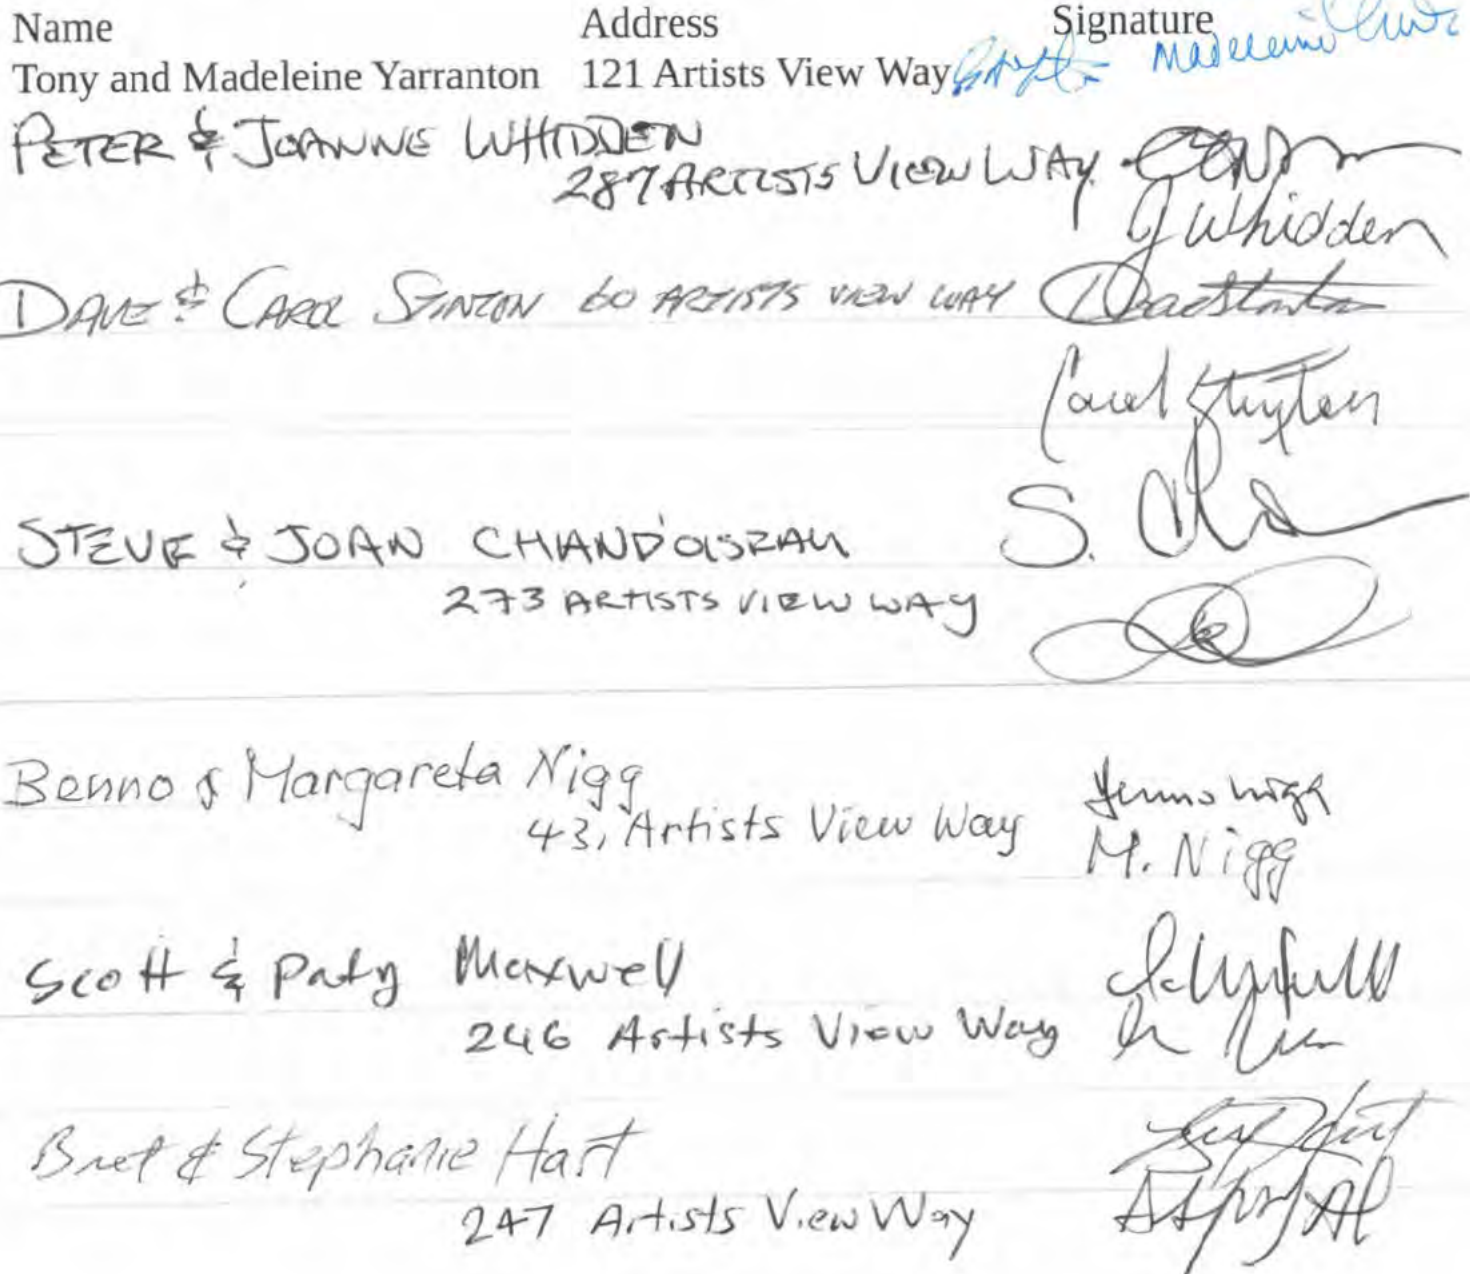 Name Address Signature
Tony and Madeleine Yarranton 121 Artists View Way Madeleine
PETER & JOANNE WHIDDEN
287 ARTISTS VIEW WAY
J Whidden
DAVE & CAROL STINTON 60 ARTISTS VIEW WAY
Carol Stinton
STEVE & JOAN
273 ARTISTS VIEW WAY
Benno & Margareta Nigg
43, Artists View Way Benno Nigg
M. Nigg
Scott & Paty Maxwell
246 Artists View Way
Bret & Stephanie Hart
247 Artists View Way